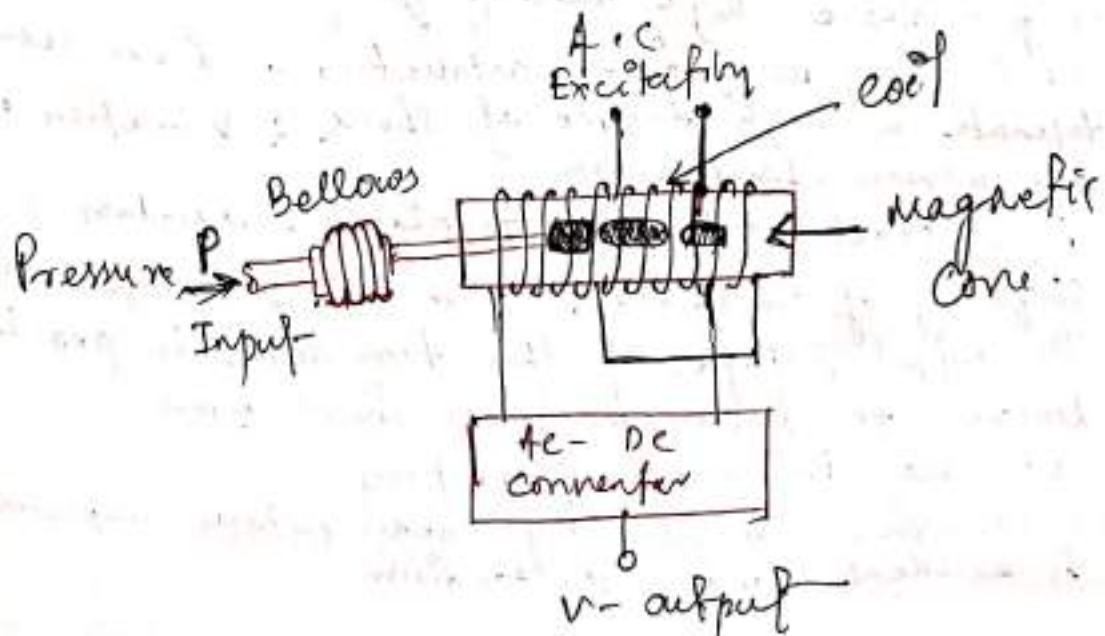 A.C.
Excitation
coil
Bellows
Magnetic
Core.
Pressure P
Input
AC - DC
converter
V - output